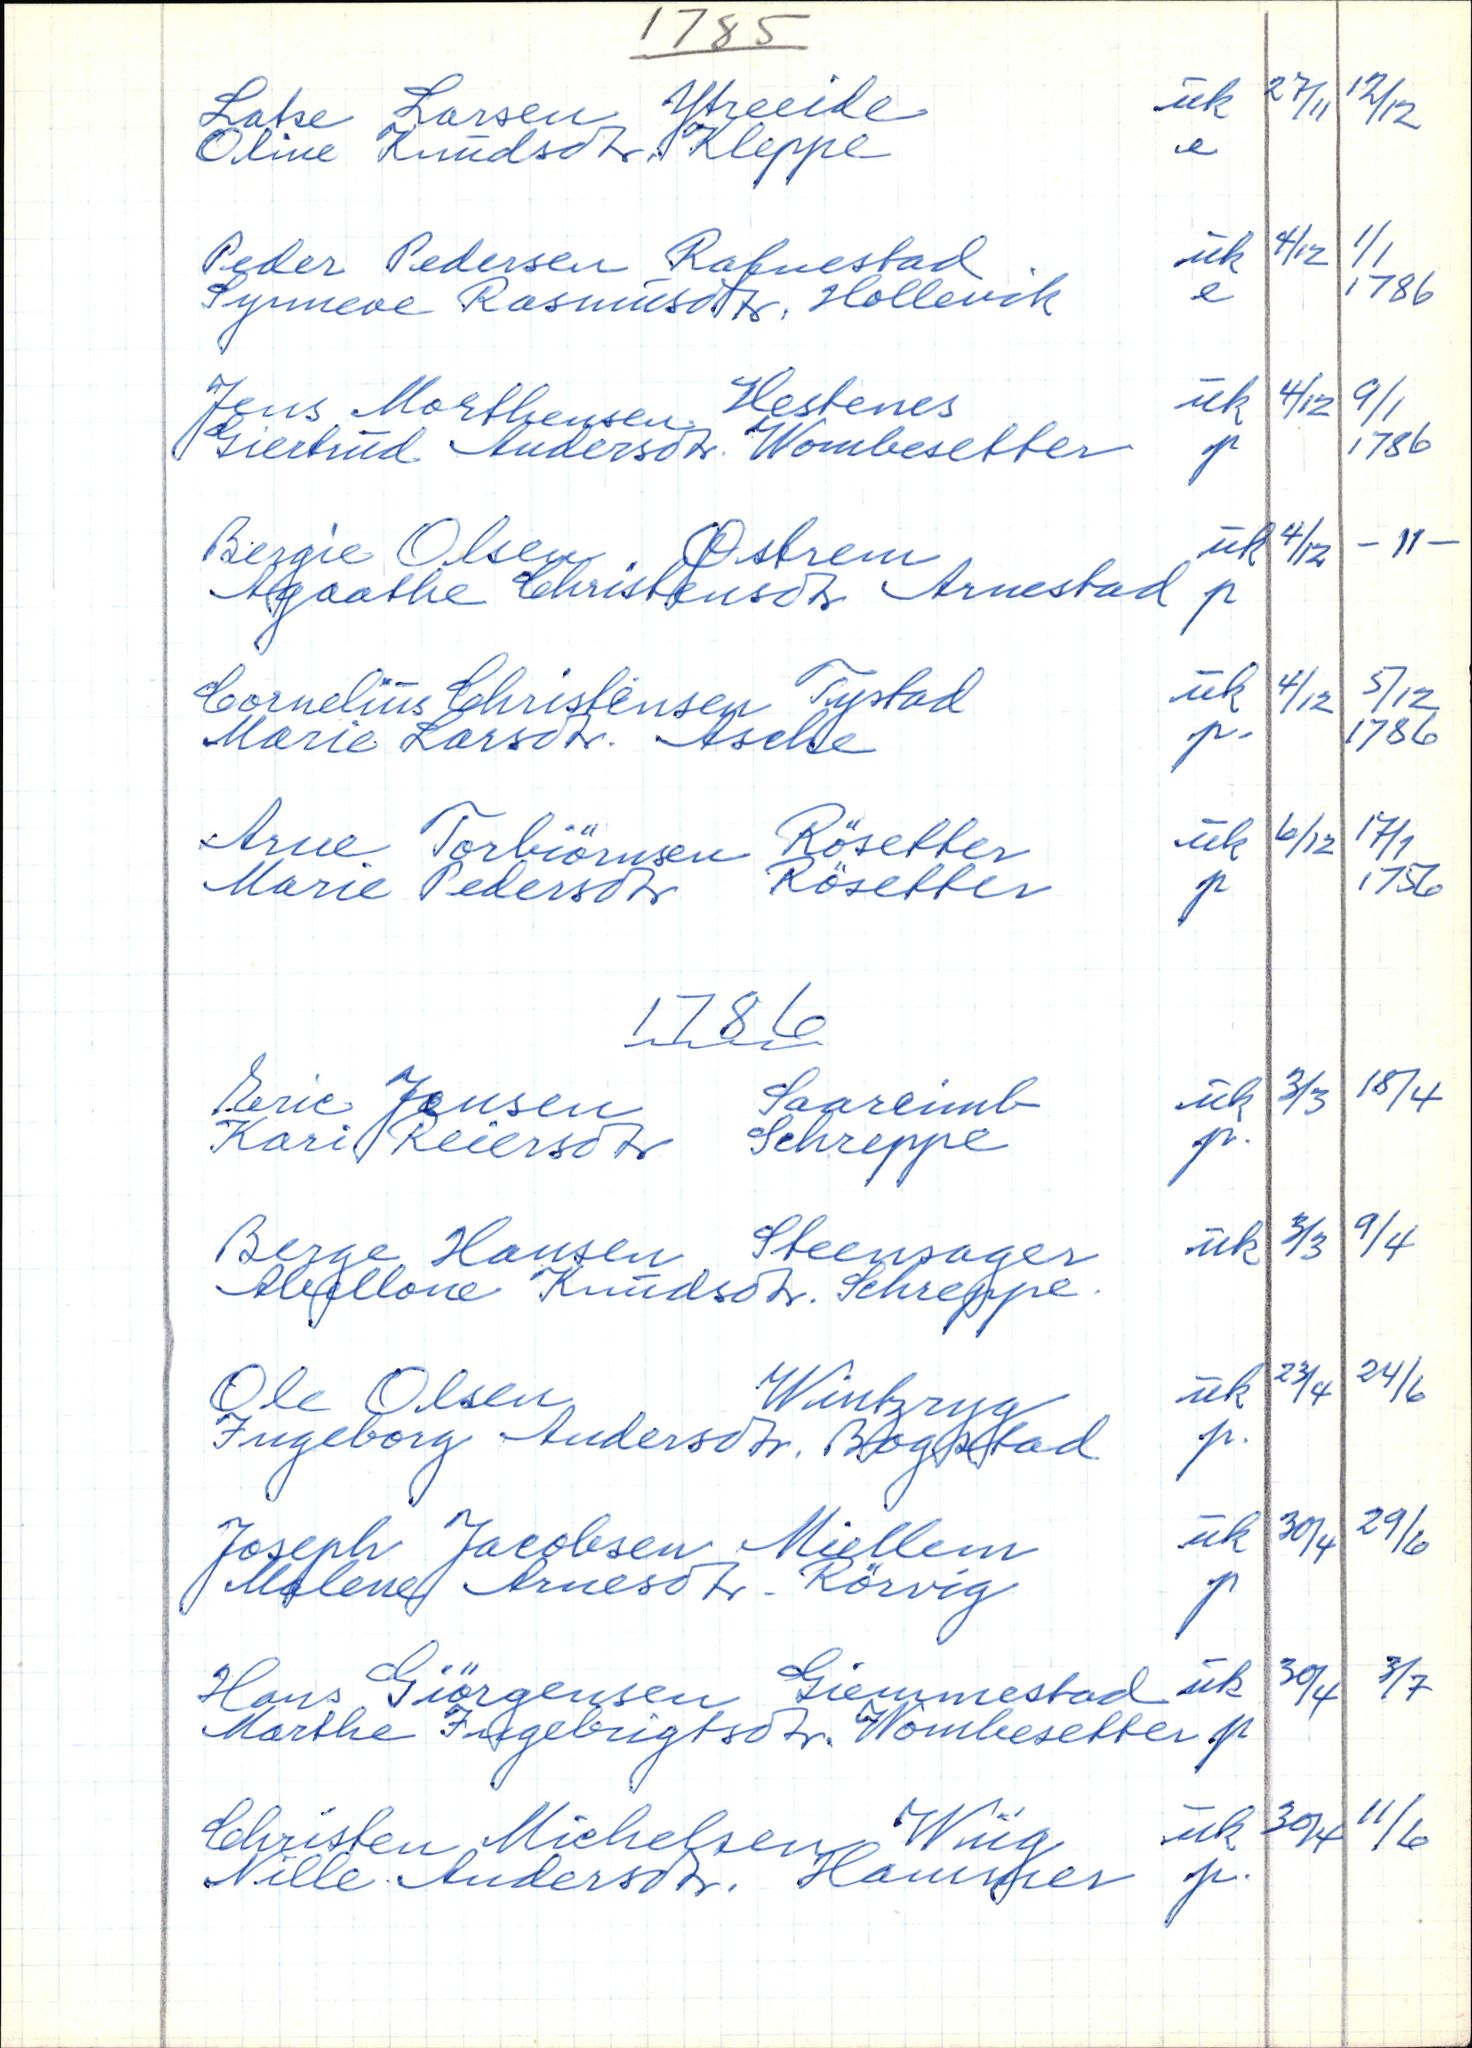 1785
Latse Larsen Ytreeide uk 27/11 12/12
Oline Knudsdtr. Kleppe e
Peder Pedersen Rafnestad uk 4/12 1/1
Synneve Rasmusdtr. Hollevik e 1786
Jens Morthensen Hestenes uk 4/12 9/1
Giertrud Andersdtr. Wombesetter p 1786
Bergie Olsen Ostrem uk 4/12 -11-
Agaathe Christensdtr Arnestad p
Cornelius Christensen Tystad uk 4/12 5/12
Marie Larsdtr. Asche p. 1786
Arne Torbiörnsen Rösetter uk 6/12 17/1
Marie Pedersdtr Rösetter p 1756
1786
Eric Jensen Saareimb uk 3/3 18/4
Kari Reiersdtr Schreppe p.
Berge Hansen Steensager uk 3/3 9/4
Abellone Knudsdtr. Schreppe.
Ole Olsen Wintzryg uk 23/4 24/6
Ingeborg Andersdtr. Bogstad p.
Joseph Jacobsen Miellem uk 30/4 29/6
Malene Arnesdtr. Rörvig p
Hans Giörgensen Giemmestad uk 30/4 3/7
Marthe Ingebrigtsdtr. Wombesetter p
Christen Michelsen Wiig uk 30/4 11/6
Nille Andersdtr. Hammer p.